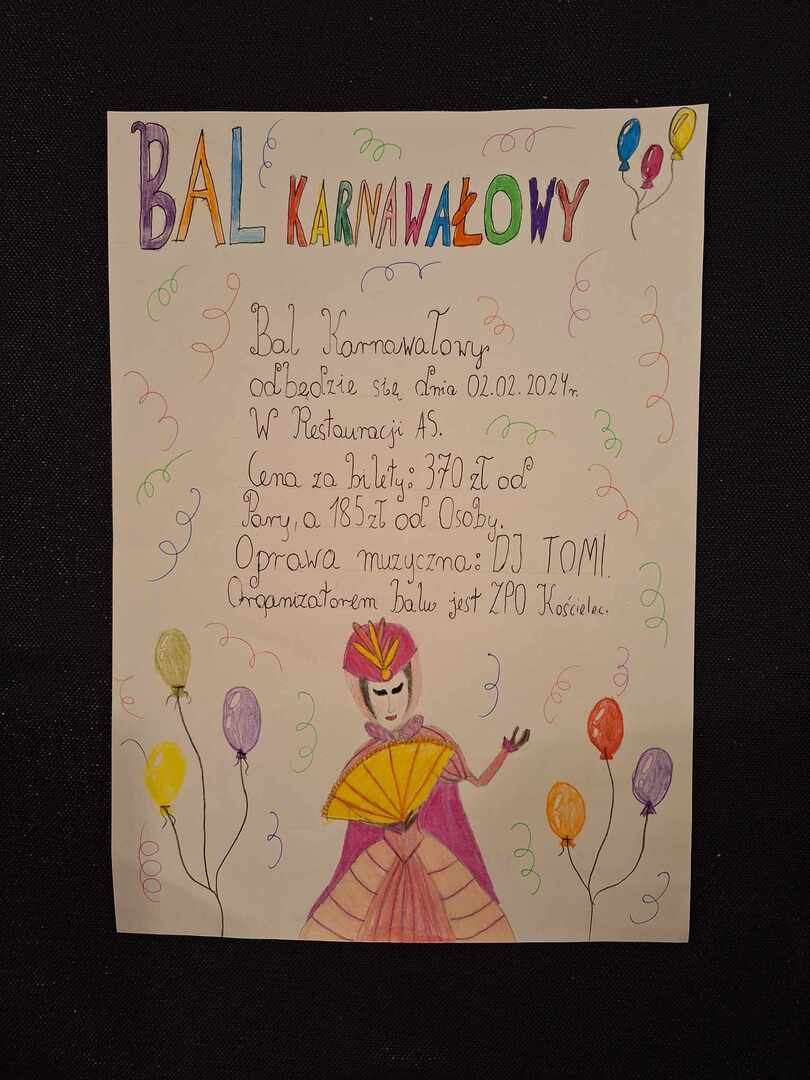 BAL KARNAWAŁOWY
Bal Karnawałowy
odbędzie się dnia 02.02.2024r.
W Restauracji AS.
Cena za bilety: 370 zł od
Pary, a 185zł od Osoby.
Oprawa muzyczna: DJ TOMI.
Organizatorem balu jest ZPO Kościelec.